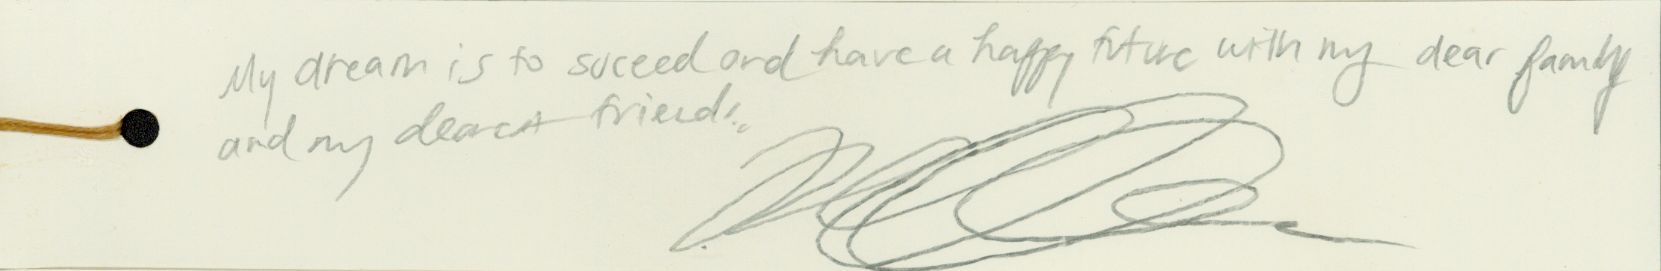 My dream is to suceed and have a happy future with my dear family
and my dearest friends.